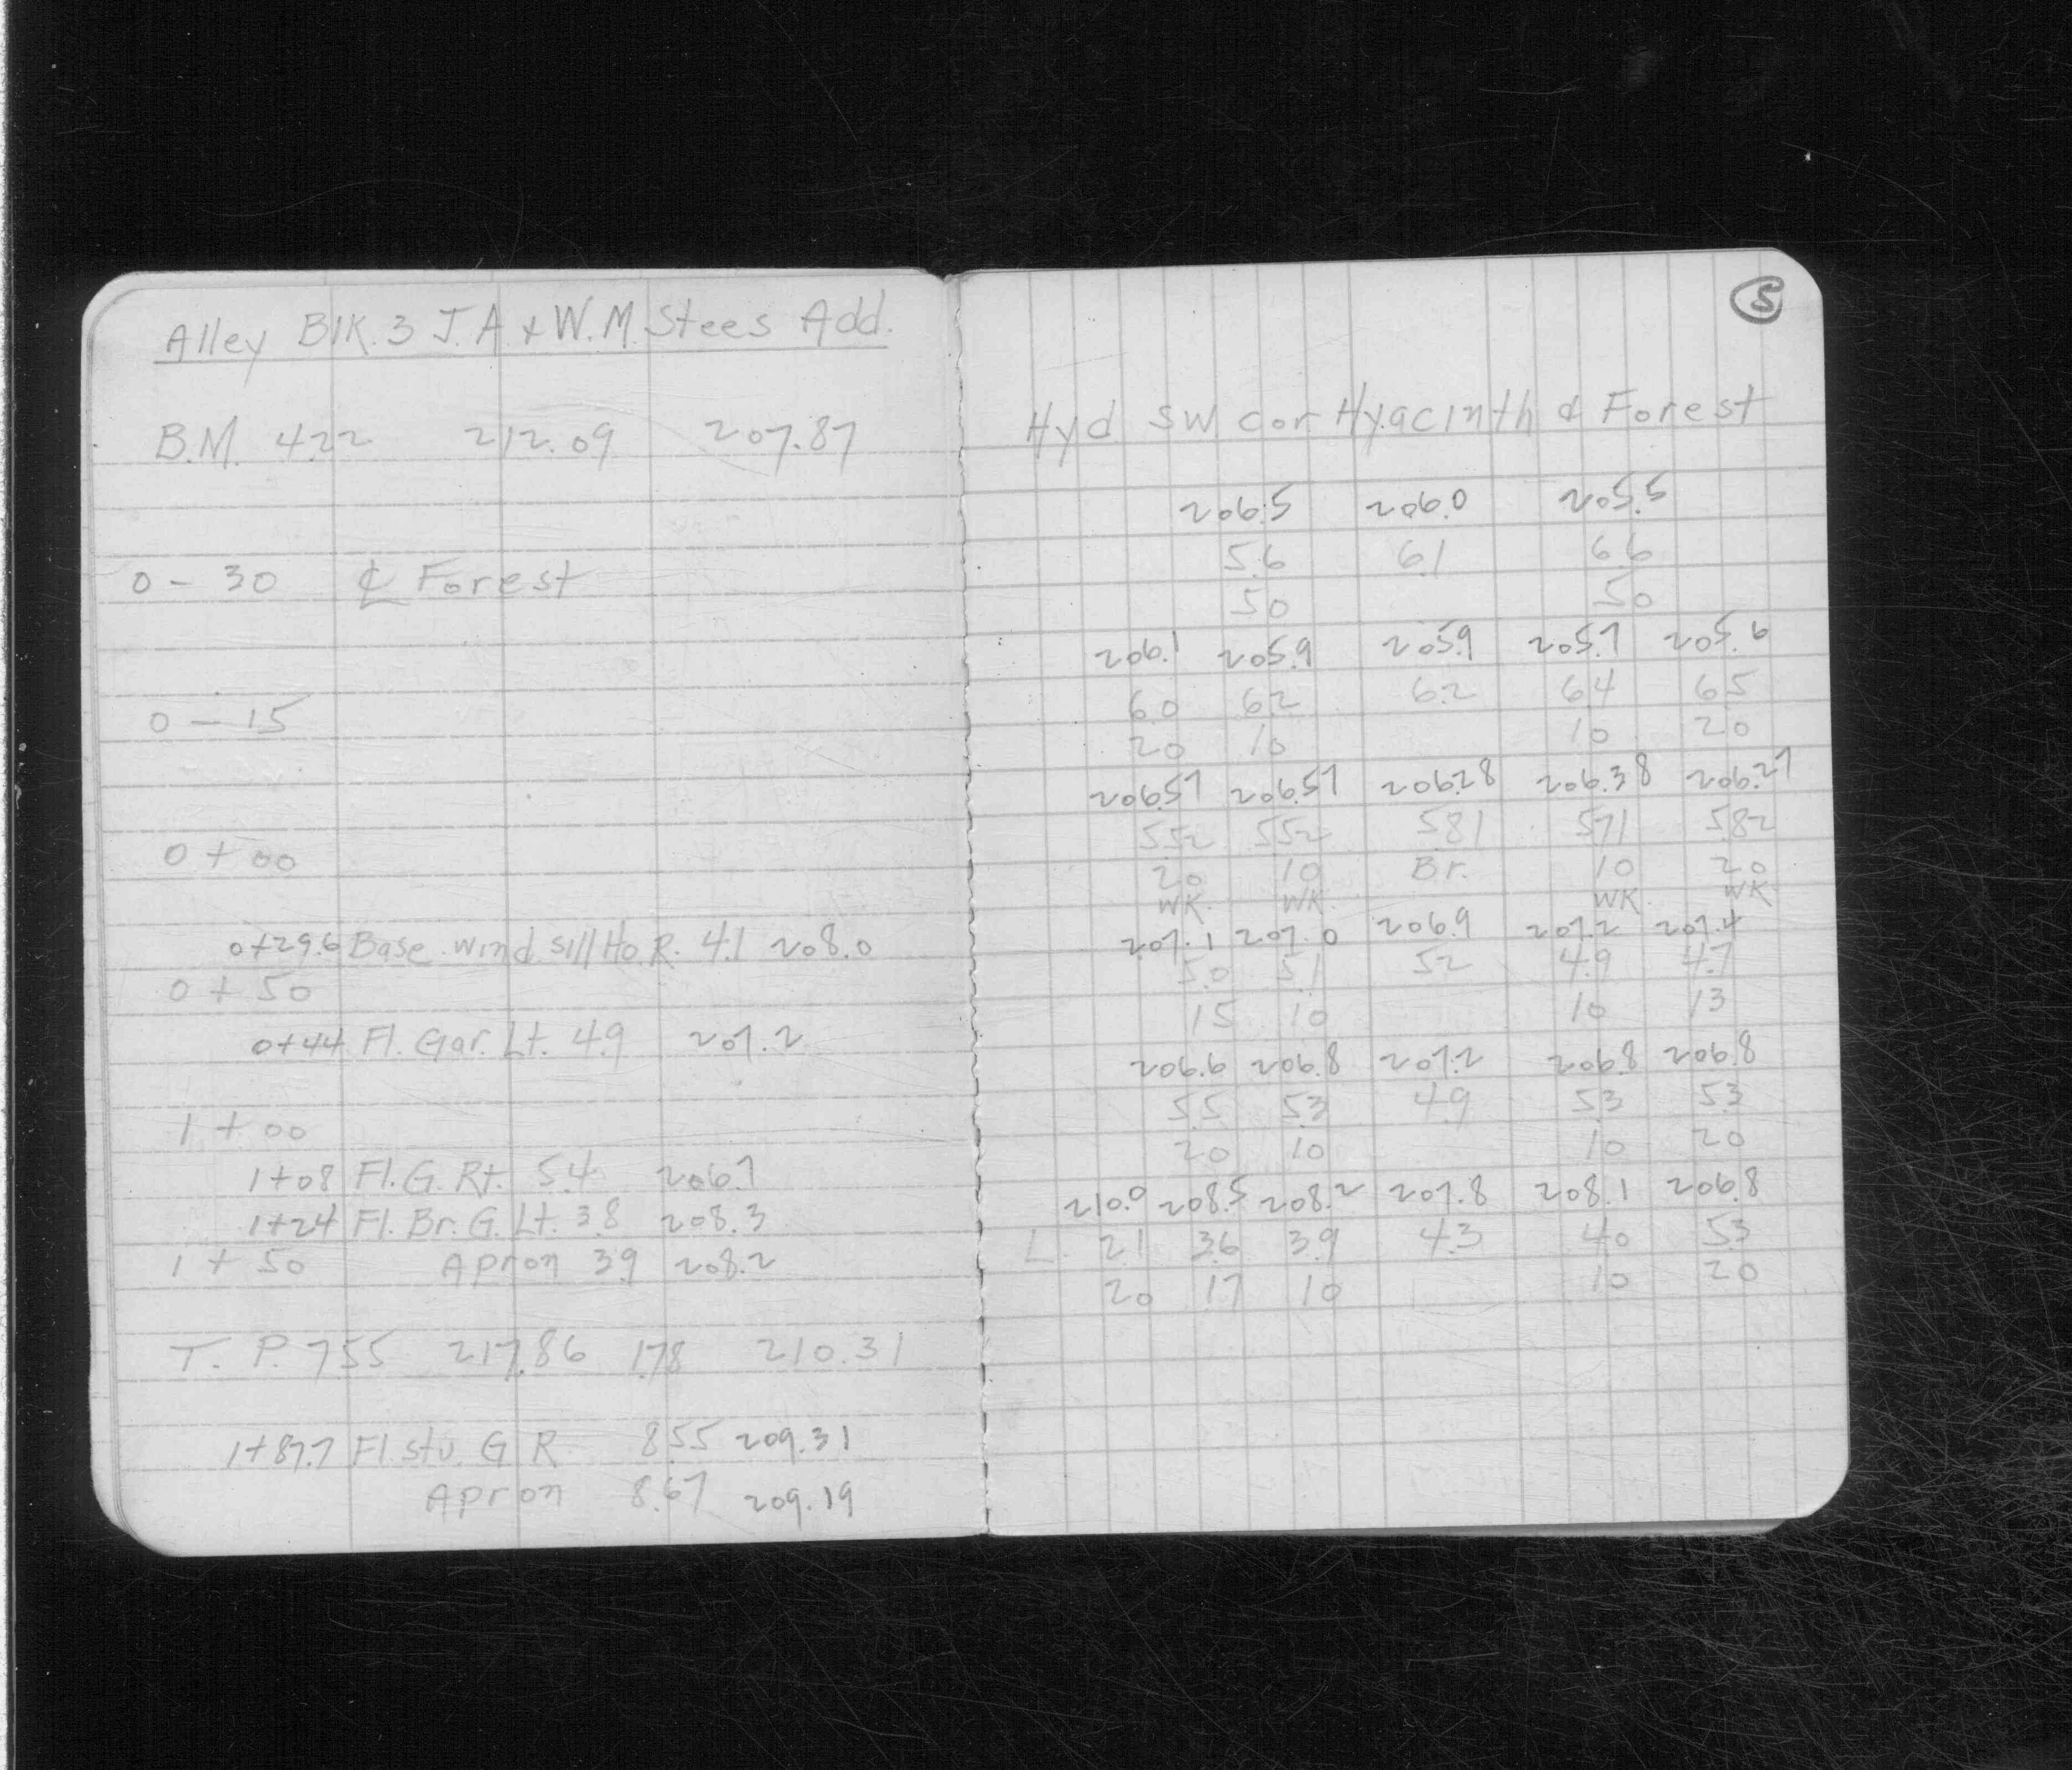 Alley Blk. 3 J.A. & W.M. Stees Add.
B.M. 4.22 212.09 207.87
0 - 30 ℄ Forest
0 - 15
0 + 00
0+29.6 Base. wind. sill Ho. R. 4.1 208.0
0 + 50
0+44 Fl. Gar. Lt. 4.9 207.2
1 + 00
1+08 Fl. G. Rt. 5.4 206.7
1+24 Fl. Br. G. Lt. 3.8 208.3
1 + 50 Apron 3.9 208.2
T. P. 7.55 217.86 1.78 210.31
1+87.7 Fl. stu. G R 8.55 209.31
Apron 8.67 209.19
5
Hyd SW cor Hyacinth & Forest
206.5 206.0 205.5
5.6 6.1 6.6
50 50
206.1 205.9 205.9 205.7 205.6
6.0 6.2 6.2 6.4 6.5
20 10 10 20
206.57 206.57 206.28 206.38 206.27
5.52 5.52 5.81 5.71 5.82
20 10 Br. 10 20
WK. WK. WK. WK
207.1 207.0 206.9 207.2 207.4
5.0 5.1 5.2 4.9 4.7
15 10 10 13
206.6 206.8 207.2 206.8 206.8
5.5 5.3 4.9 5.3 5.3
20 10 10 20
210.0 208.5 208.2 207.8 208.1 206.8
L. 2.1 3.6 3.9 4.3 4.0 5.3
20 17 10 10 20